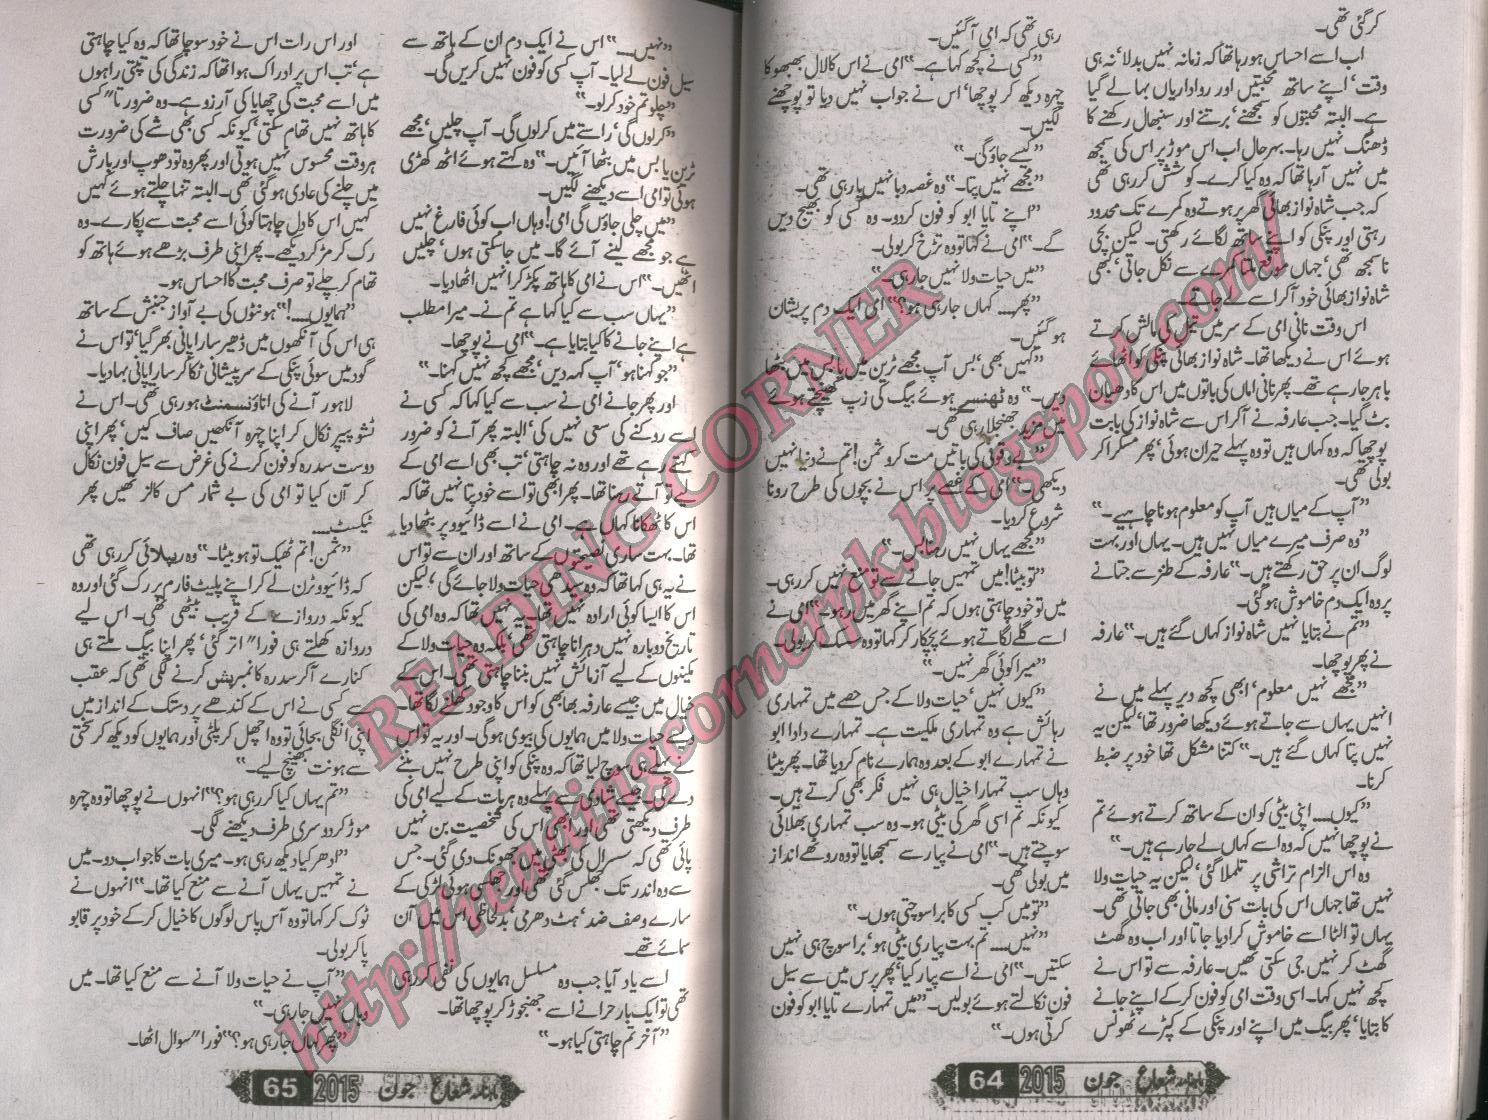 کر گئی تھی۔
اب اسے احساس ہو رہا تھا کہ زمانہ نہیں بدلا‘ نہ ہی
وقت‘ اپنے ساتھ محبتیں اور رواداریاں بہا لے گیا
ہے۔ البتہ محبتوں کو سمجھنے‘ برتنے اور سنبھال رکھنے کا
ڈھنگ نہیں رہا۔ بہرحال اب اس موڑ پر اس کی سمجھ
میں نہیں آ رہا تھا کہ وہ کیا کرے۔ کوشش کر رہی تھی
کہ جب شاہ نواز بھائی گھر پر ہوتے وہ کمرے تک محدود
رہتی اور پنکی کو اپنے ساتھ لگائے رکھتی۔ لیکن بچی
نا سمجھ تھی‘ جہاں موقع ملتا کمرے سے نکل جاتی‘ کبھی
شاہ نواز بھائی خود آ کر اسے لے جاتے۔
اس وقت نانی امی کے سر میں تیل کی مالش کرتے
ہوئے اس نے دیکھا تھا۔ شاہ نواز بھائی پنکی کو اٹھائے
باہر جا رہے تھے۔ پھر نانی اماں کی باتوں میں اس کا دھیان
بٹ گیا۔ جب عارفہ نے آ کر اس سے شاہ نواز کی بابت
پوچھا کہ وہ کہاں ہیں تو وہ پہلے حیران ہوئی‘ پھر مسکرا کر
بولی تھی۔
”آپ کے میاں ہیں آپ کو معلوم ہونا چاہیے۔“
”وہ صرف میرے میاں نہیں ہیں۔ یہاں اور بہت
لوگ ان پر حق رکھتے ہیں۔“ عارفہ کے طنز سے جتانے
پر وہ ایک دم خاموش ہو گئی۔
”تم نے بتایا نہیں شاہ نواز کہاں گئے ہیں۔“ عارفہ
نے پھر پوچھا۔
”مجھے نہیں معلوم‘ ابھی کچھ دیر پہلے میں نے
انہیں یہاں سے جاتے ہوئے دیکھا ضرور تھا‘ لیکن یہ
نہیں پتا کہاں گئے ہیں۔“ کتنا مشکل تھا خود پر ضبط
کرنا۔
”کیوں.... اپنی بیٹی کو ان کے ساتھ کرتے ہوئے تم
نے پوچھا نہیں کہ وہ اسے کہاں لے جا رہے ہیں۔“
وہ اس الزام تراشی پر تلملا گئی‘ لیکن یہ حیات ولا
نہیں تھا جہاں اس کی بات سنی اور مانی بھی جاتی تھی۔
یہاں تو الٹا اسے خاموش کرا دیا جاتا اور اب وہ گھٹ
گھٹ کر نہیں جی سکتی تھیں۔ عارفہ سے تو اس نے
کچھ نہیں کہا۔ اسی وقت امی کو فون کر کے اپنے جانے
کا بتایا‘ پھر بیگ میں اپنے اور پنکی کے کپڑے ٹھونس
رہی تھی کہ امی آ گئیں۔
”کسی نے کچھ کہا ہے۔“ امی نے اس کا لال بھبھوکا
چہرہ دیکھ کر پوچھا‘ اس نے جواب نہیں دیا تو پوچھنے
لگیں۔
”کیسے جاؤ گی۔“
”مجھے نہیں پتا۔“ وہ غصہ دبا نہیں پا رہی تھی۔
”اپنے تایا ابو کو فون کر دو۔ وہ کسی کو بھیج دیں
گے۔“ امی نے کہا تو وہ تڑخ کر بولی۔
”میں حیات ولا نہیں جا رہی۔“
”پھر.... کہاں جا رہی ہو؟“ امی ایک دم پریشان
ہو گئیں۔
”کہیں بھی‘ بس آپ مجھے ٹرین میں یا بس میں بٹھا
دیں۔“ وہ ٹھنسے ہوئے بیگ کی زپ کھینچتے ہوئے
میں مزید جھنجلا رہی تھی۔
”بے وقوفی کی باتیں مت کرو ثمن! تم نے دنیا نہیں
دیکھی۔“ امی کے غصے پر اس نے بچوں کی طرح رونا
شروع کر دیا۔
”مجھے یہاں نہیں رہنا بس۔“
”تو بیٹا! میں تمہیں جانے سے تو منع نہیں کر رہی۔
میں تو خود چاہتی ہوں کہ تم اپنے گھر میں رہو۔“ امی نے
اسے گلے لگاتے ہوئے پچکار کر کہا تو وہ سسک کر بولی۔
”میرا کوئی گھر نہیں۔“
”کیوں نہیں‘ حیات ولا کے جس حصے میں تمہاری
رہائش ہے وہ تمہاری ملکیت ہے۔ تمہارے دادا ابو
نے تمہارے ابو کے بعد وہ ہمارے نام کر دیا تھا۔ پھر بیٹا
وہاں سب تمہارا خیال ہی نہیں فکر بھی کرتے ہیں۔
کیونکہ تم اسی گھر کی بیٹی ہو۔ وہ سب تمہاری بھلائی
سوچتے ہیں۔“ امی نے پیار سے سمجھایا تو وہ روٹھے انداز
میں بولی تھی۔
”تو میں کب کسی کا برا سوچتی ہوں۔“
”نہیں.... تم بہت پیاری بیٹی ہو‘ برا سوچ ہی نہیں
سکتیں۔“ امی نے اسے پیار کیا‘ پھر پرس میں سے سیل
فون نکالتے ہوئے بولیں۔ ”میں تمہارے تایا ابو کو فون
کرتی ہوں۔“
ماہنامہ شعاع جون 2015 64
”نہیں....“ اس نے ایک دم ان کے ہاتھ سے
سیل فون لے لیا۔ آپ کسی کو فون نہیں کریں گی۔
”چلو تم خود کر لو۔“
”کر لوں گی‘ راستے میں کر لوں گی۔ آپ چلیں‘ مجھے
ٹرین یا بس میں بٹھا آئیں۔“ وہ کہتے ہوئے اٹھ کھڑی
ہوئی تو امی اسے دیکھنے لگیں۔
”میں چلی جاؤں گی امی! وہاں اب کوئی فارغ نہیں
ہے جو مجھے لینے آئے گا۔ میں جا سکتی ہوں‘ چلیں
اٹھیں۔“ اس نے امی کا ہاتھ پکڑ کر انہیں اٹھا دیا۔
”یہاں سب سے کیا کہا ہے تم نے۔ میرا مطلب
ہے اپنے جانے کا کیا بتایا ہے۔“ امی نے پوچھا۔
”جو کہنا ہو‘ آپ کہہ دیں‘ مجھے کچھ نہیں کہنا۔“
اور پھر جانے امی نے سب سے کیا کہا کہ کسی نے
اسے روکنے کی سعی نہیں کی‘ البتہ پھر آنے کو ضرور
کہتے رہے تھے اور وہ نہ چاہتی‘ تب بھی اسے امی کے
لیے تو آتے رہنا تھا۔ پھر ابھی تو اسے خود پتا نہیں تھا کہ
اس کا ٹھکانا کہاں ہے۔ امی نے اسے ڈائیوو پر بٹھا دیا
تھا۔ بہت ساری نصیحتوں کے ساتھ اور ان سے تو اس
نے یہی کہا تھا کہ وہ سیدھی حیات ولا جائے گی‘ لیکن
اس کا ایسا کوئی ارادہ نہیں تھا۔ یہ نہیں تھا کہ وہ امی کی
تاریخ دوبارہ نہیں دہرانا چاہتی تھی‘ بلکہ وہ حیات ولا کے
مکینوں کے لیے آزمائش نہیں بننا چاہتی تھی۔ اس کے
خیال میں جیسے عارفہ بھابی کو اس کا وجود کھلنے لگا تھا۔
ویسے حیات ولا میں ہمایوں کی بیوی ہوگی۔ اور یہ تو اس
نے پہلے ہی سوچ لیا تھا کہ وہ پنکی کو اپنی طرح نہیں بننے
دے گی۔ جیسے شادی سے پہلے وہ ہر بات کے لیے امی کی
طرف دیکھتی تھی اور ابھی اس کی شخصیت بن نہیں
پائی تھی کہ سسرال کی بھٹی میں جھونک دی گئی۔ جس
سے وہ اندر تک جھلس گئی تھی اور جھلسی ہوئی لڑکی کے
سارے وصف ضد‘ ہٹ دھرمی‘ بدلحاظی اس میں آن
سمائے تھے۔
اسے یاد آیا جب وہ مسلسل ہمایوں کی نفی کر رہی
تھی تو ایک بار حرا نے اسے جھنجوڑ کر پوچھا تھا۔
”آخر تم چاہتی کیا ہو۔“
اور اس رات اس نے خود سوچا تھا کہ وہ کیا چاہتی
ہے‘ تب اس پر ادراک ہوا تھا کہ زندگی کی تپتی راہوں
میں اسے محبت کی چھایا کی آرزو ہے۔ وہ ضرورتاً ”کسی
کا ہاتھ نہیں تھام سکتی‘ کیونکہ کسی بھی شے کی ضرورت
ہر وقت محسوس نہیں ہوتی اور پھر وہ تو دھوپ اور بارش
میں چلنے کی عادی ہو گئی تھی۔ البتہ تنہا چلتے ہوئے کہیں
کہیں اس کا دل چاہتا کوئی اسے محبت سے پکارے۔ وہ
رک کر مڑ کر دیکھے۔ پھر اپنی طرف بڑھے ہوئے ہاتھ کو
تھام کر چلے تو صرف محبت کا احساس ہو۔
”ہمایوں....!“ ہونٹوں کی بے آواز جنبش کے ساتھ
ہی اس کی آنکھوں میں ڈھیر سارا پانی بھر گیا‘ تو اس نے
گود میں سوئی پنکی کے سر پیشانی ٹکا کر سارا پانی بہا دیا۔
لاہور آنے کی اناؤنسمنٹ ہو رہی تھی۔ اس نے
ٹشو پیپر نکال کر اپنا چہرہ آنکھیں صاف کیں‘ پھر اپنی
دوست سدرہ کو فون کرنے کی غرض سے سیل فون نکال
کر آن کیا تو امی کی بے شمار مس کالز تھیں پھر
ٹیکسٹ....
”ثمن! تم ٹھیک تو ہو بیٹا۔“ وہ ریپلائی کر رہی تھی
کہ ڈائیوو ٹرن لے کر اپنے پلیٹ فارم پر رک گئی اور وہ
کیونکہ دروازے کے قریب بیٹھی تھی۔ اس لیے
دروازہ کھلتے ہی فورا“ اتر گئی‘ پھر اپنا بیگ ملتے ہی
کنارے آ کر سدرہ کا نمبر پش کرنے لگی تھی کہ عقب
سے کسی نے اس کے کندھے پر دستک کے انداز میں
اپنی انگلی بجائی تو وہ اچھل کر پلٹی اور ہمایوں کو دیکھ کر سختی
سے ہونٹ بھینچ لیے۔“
”تم یہاں کیا کر رہی ہو؟“ انہوں نے پوچھا تو وہ چہرہ
موڑ کر دوسری طرف دیکھنے لگی۔
”ادھر کیا دیکھ رہی ہو۔ میری بات کا جواب دو۔ میں
نے تمہیں یہاں آنے سے منع کیا تھا۔“ انہوں نے
ٹوک کر کہا تو وہ آس پاس لوگوں کا خیال کر کے خود پر قابو
پا کر بولی۔
”آپ نے حیات ولا آنے سے منع کیا تھا۔ میں
وہاں نہیں جا رہی۔“
”پھر کہاں جا رہی ہو؟“ فورا“ سوال اٹھا۔
ماہنامہ شعاع جون 2015 65
READING CORNER
http://readingcornerpk.blogspot.com/